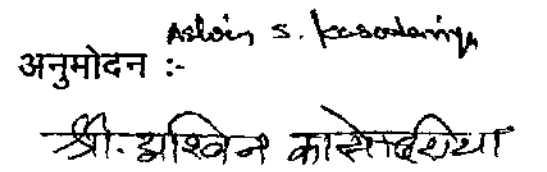 Aslvin S. Kasodariya
अनुमोदन :-
श्री. अश्विन कासोदरीया